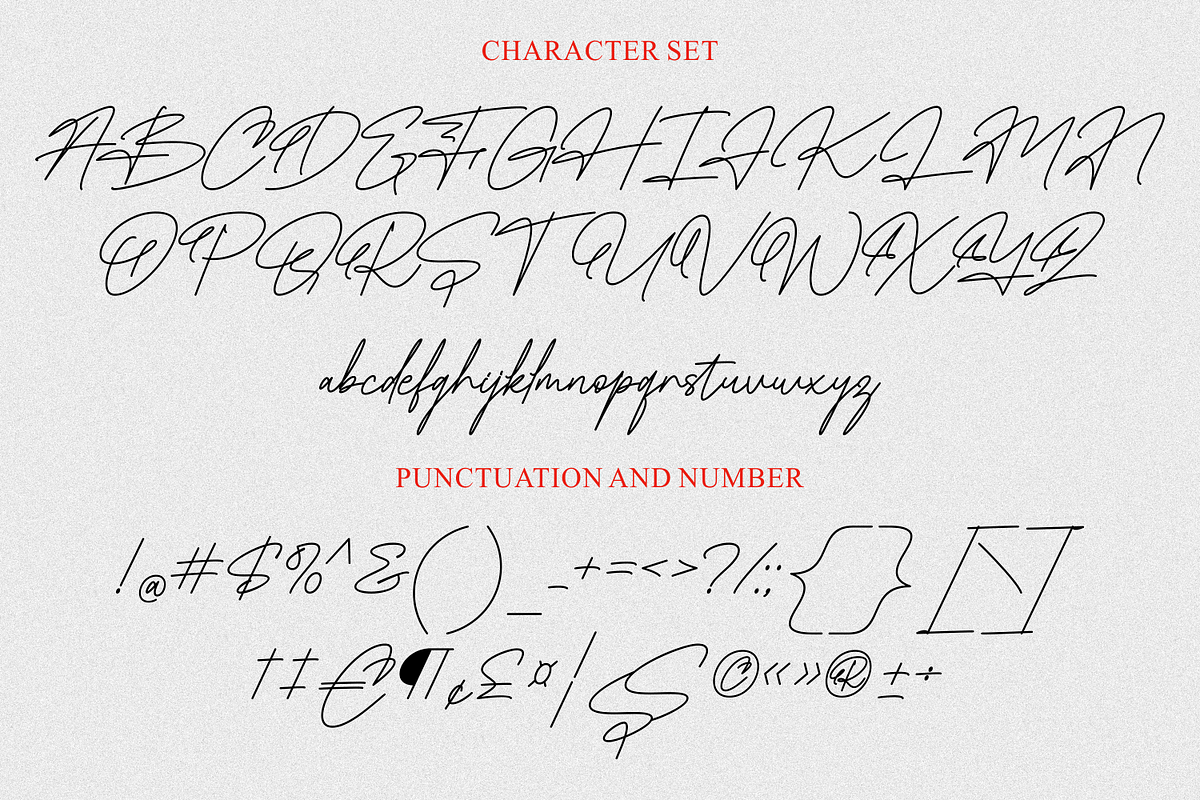 CHARACTER SET
ABCDEFGHIJKLMN
OPQRSTUVWXYZ
abcdefghijklmnopqrstuvwxyz
PUNCTUATION AND NUMBER
!@#$%^&()_-+=<>?/:;{}[\]
†‡€¶¢£¤¦§©«»®±÷